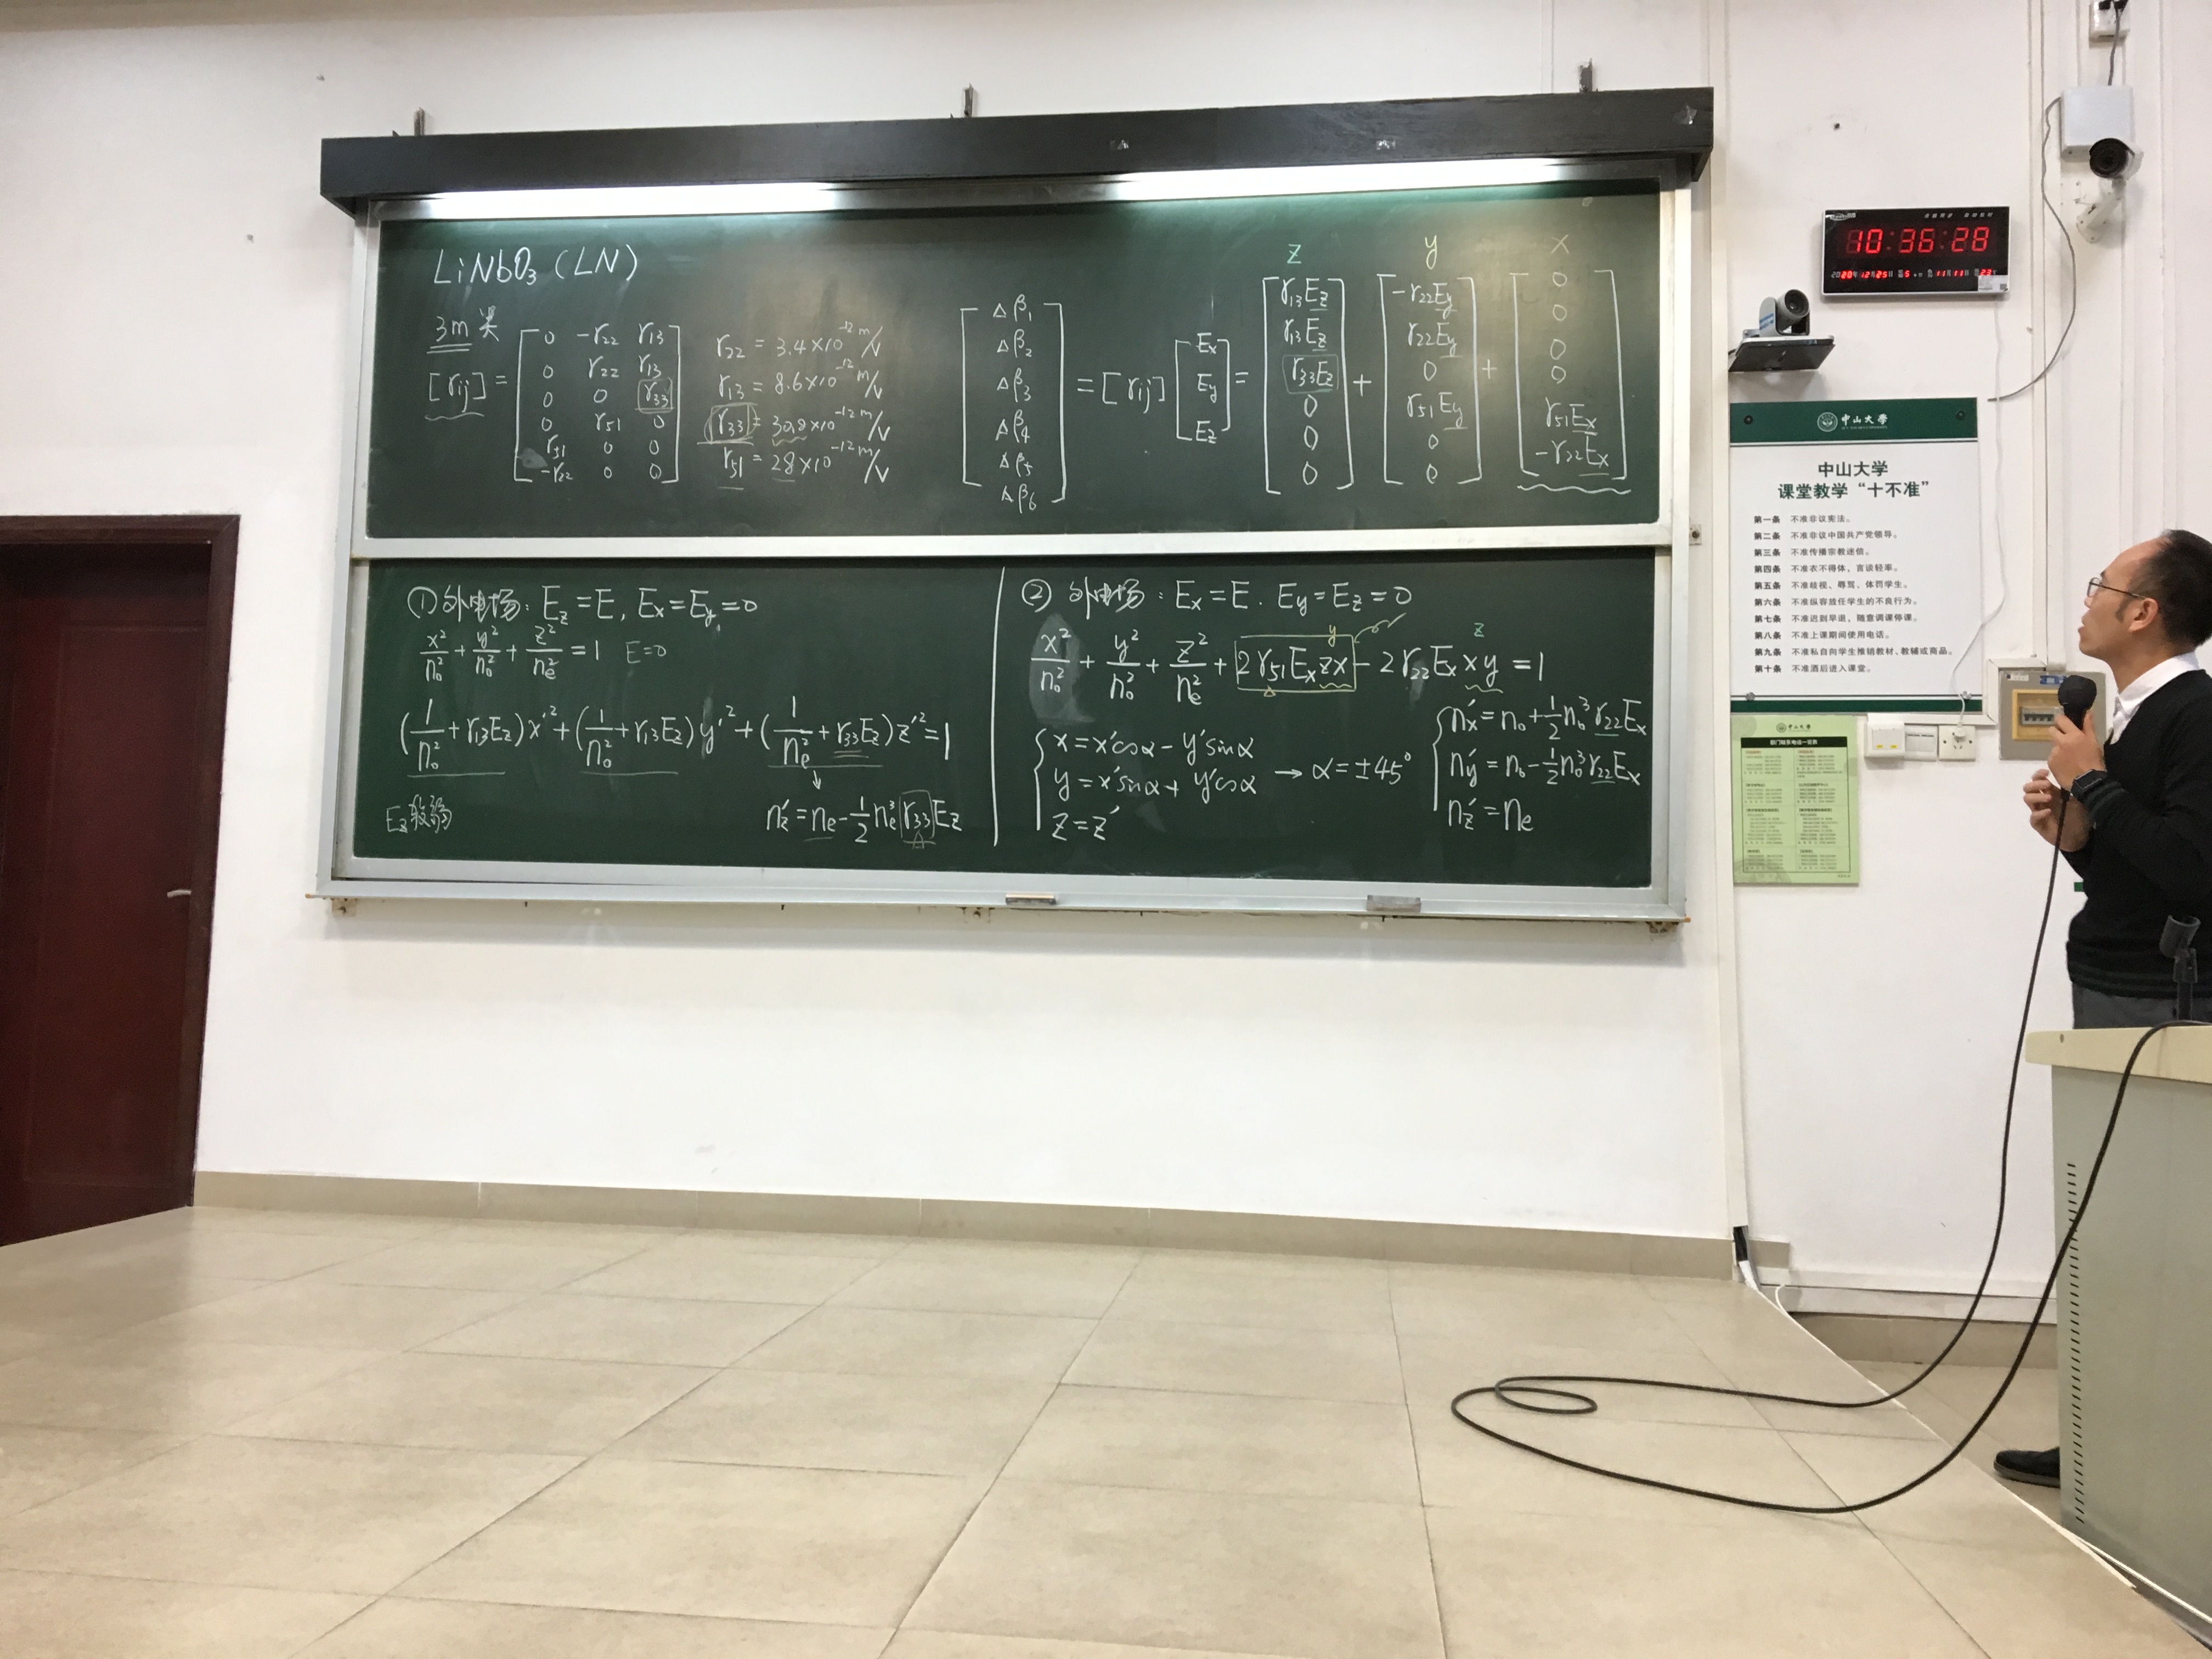 LiNbO₃ (LN)
3m 类
[rij] =
0 -r₂₂ r₁₃
0 r₂₂ r₁₃
0 0 r₃₃
0 r₅₁ 0
r₅₁ 0 0
-r₂₂ 0 0
r₂₂ = 3.4×10⁻¹² m/V
r₁₃ = 8.6×10⁻¹² m/V
r₃₃ = 30.8×10⁻¹² m/V
r₅₁ = 28×10⁻¹² m/V
Δβ₁
Δβ₂
Δβ₃
Δβ₄
Δβ₅
Δβ₆
= [rij]
Ex
Ey
Ez
=
z
r₁₃Ez
r₁₃Ez
r₃₃Ez
0
0
0
+
y
-r₂₂Ey
r₂₂Ey
0
r₅₁Ey
0
0
+
x
0
0
0
0
r₅₁Ex
-r₂₂Ex
① 外电场: Ez = E, Ex = Ey = 0
x²/n₀² + y²/n₀² + z²/nₑ² = 1 E=0
(1/n₀² + r₁₃Ez)x'² + (1/n₀² + r₁₃Ez)y'² + (1/nₑ² + r₃₃Ez)z'² = 1
Ez较弱
nz' = nₑ - ½nₑ³r₃₃Ez
② 外电场: Ex = E. Ey = Ez = 0
y z
x²/n₀² + y²/n₀² + z²/nₑ² + 2r₅₁Ex zx - 2r₂₂Ex xy = 1
x = x'cosα - y'sinα
y = x'sinα + y'cosα
z = z'
→ α = ±45°
nx' = n₀ + ½n₀³r₂₂Ex
ny' = n₀ - ½n₀³r₂₂Ex
nz' = nₑ
10:36:28
中山大学
中山大学
课堂教学“十不准”
第一条 不准非议宪法。
第二条 不准非议中国共产党领导。
第三条 不准传播宗教迷信。
第四条 不准衣不得体，言谈轻率。
第五条 不准歧视、辱骂、体罚学生。
第六条 不准纵容放任学生的不良行为。
第七条 不准迟到早退，随意调课停课。
第八条 不准上课期间使用电话。
第九条 不准私自向学生推销教材、教辅或商品。
第十条 不准酒后进入课堂。